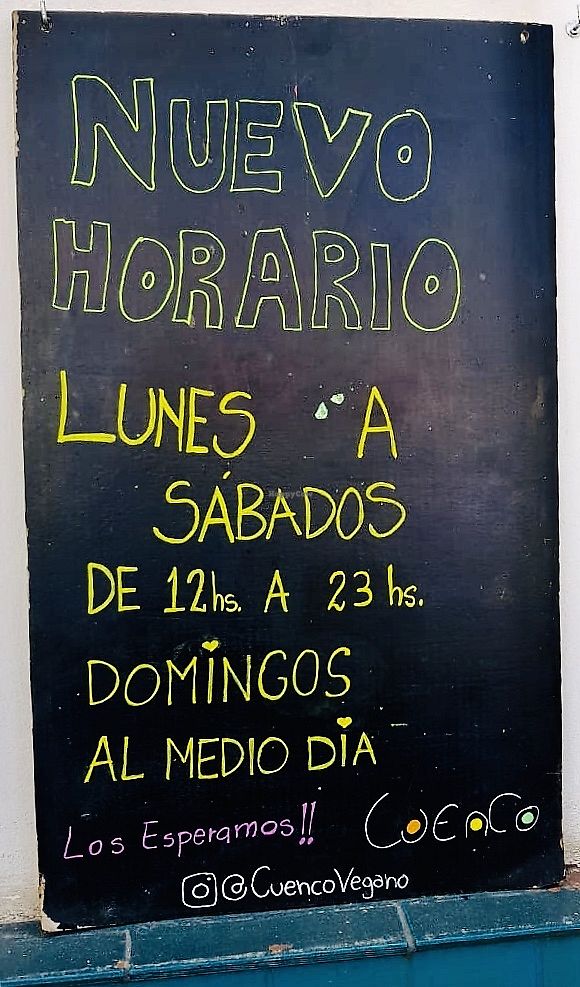 NUEVO
HORARIO
LUNES A
SÁBADOS
DE 12hs. A 23 hs.
DOMINGOS
AL MEDIO DIA
Los Esperamos!! CUENCO
@CuencoVegano